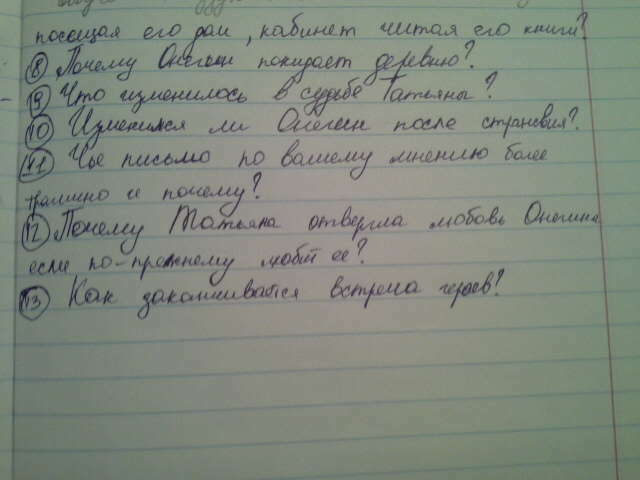 посещая его дом, кабинет читая его книги?
8 Почему Онегин покидает деревню?
9 Что изменилось в судьбе Татьяны?
10 Изменился ли Онегин после странствия?
11 Чье письмо по вашему мнению более
и почему?
12 Почему Татьяна отвергла любовь Онегина
если по-прежнему любит ее?
13 Как заканчивается встреча героев?